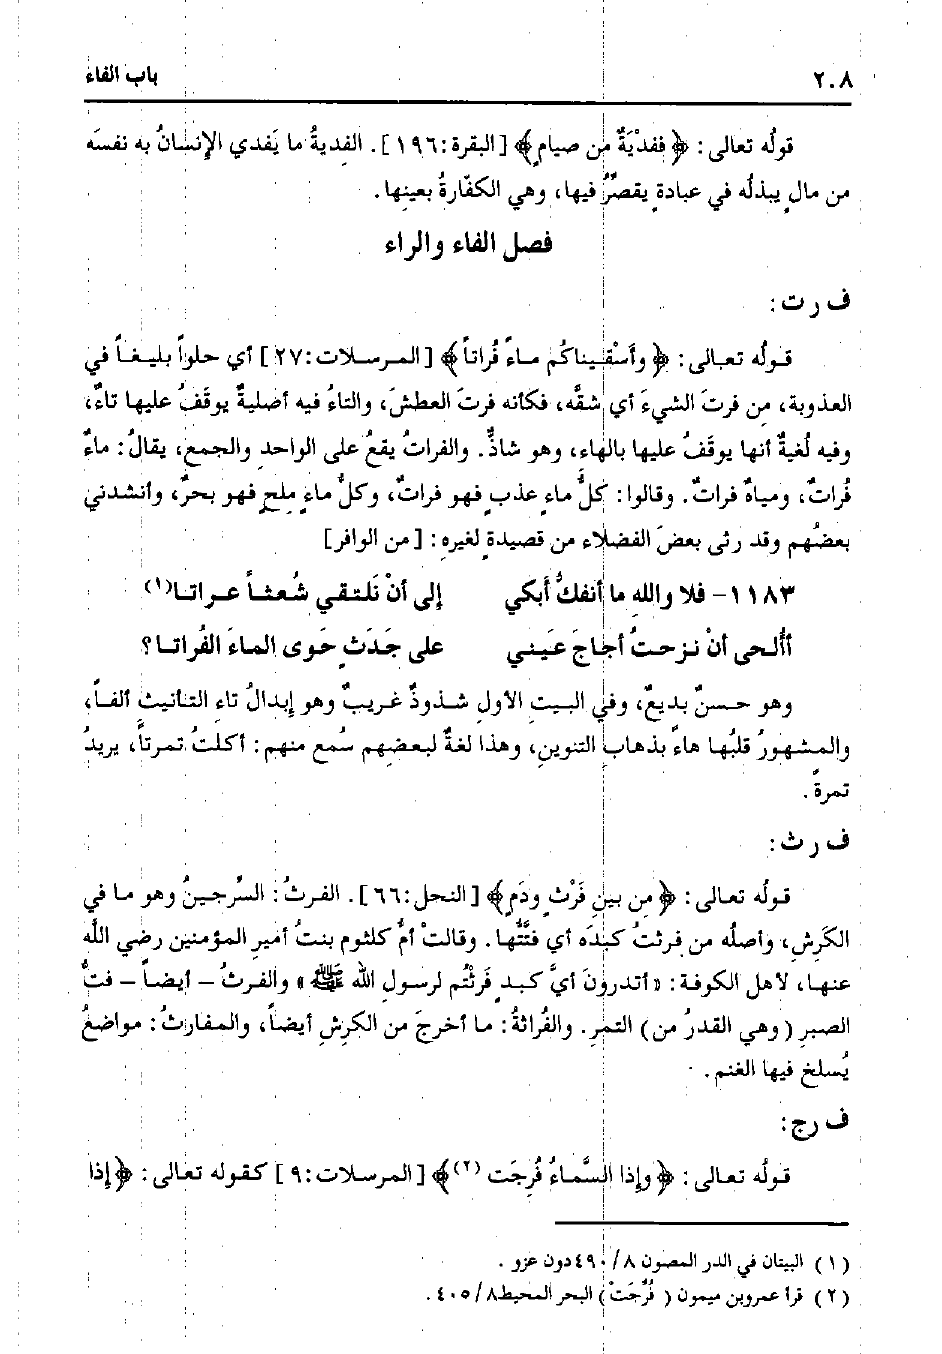 ٢٠٨ باب الفاء
قولُه تعالى: ﴿ ففدْيَةٌ من صيامٍ﴾ [البقرة:١٩٦]. الفديةُ ما يَفدي الإنسانُ به نفسَه
من مالٍ يبذلُه في عبادةٍ يقصِّرُ فيها، وهي الكفّارةُ بعينِها.
فصل الفاء والراء
ف ر ت:
قولُه تعالى: ﴿ وأسْقيناكُم ماءً فُراتاً ﴾ [المرسلات:٢٧] أي حلواً بليغاً في
العذوبة، مِن فرتَ الشيءَ أي شقَّه، فكأنه فرتَ العطشَ، والتاءُ فيه أصليةٌ يوقَفُ عليها تاءً،
وفيه لُغيةٌ أنها يوقَفُ عليها بالهاء، وهو شاذٌّ. والفراتُ يقعُ على الواحدِ والجمعِ، يقالُ: ماءٌ
فُراتٌ، ومياهٌ فراتٌ. وقالوا: كلُّ ماءٍ عذبٍ فهو فراتٌ، وكلُّ ماءٍ ملحٍ فهو بحرٌ، وأنشدني
بعضُهم وقد رثى بعضَ الفضلاء من قصيدةٍ لغيرِه: [من الوافر]
١١٨٣- فلا واللهِ ما أنفكُّ أبكي إلى أنْ نَلتقي شُعثاً عراتا(١)
أأُلحى أنْ نزحتُ أجاجَ عَيني على جَدَثٍ حَوى الماءَ الفُراتا؟
وهو حسنٌ بديعٌ، وفي البيتِ الأولِ شذوذٌ غريبٌ وهو إبدالُ تاءِ التأنيث ألفاً،
والمشهورُ قلبُها هاءً بذهابِ التنوينِ، وهذا لغةٌ لبعضِهم سُمع منهم: أكلتُ تمرتاً، يريدُ
تمرةً.
ف ر ث:
قولُه تعالى: ﴿ مِن بينِ فَرْثٍ ودَمٍ﴾ [النحل:٦٦]. الفرثُ: السِّرجينُ وهو ما في
الكَرِشِ، وأصلُه من فرثتُ كبدَه أي فتَّتُّها. وقالتْ أمُّ كلثوم بنتُ أميرِ المؤمنين رضي اللهُ
عنها، لأهل الكوفة: « أتدرونَ أيَّ كبدٍ فَرَثْتُم لرسولِ اللهِ ﷺ » والفرثُ – أيضاً – فتُّ
الصبرِ (وهي القدرُ من) التمرِ. والفُراثةُ: ما أخرجَ من الكرشِ أيضاً، والمفارثُ: مواضعُ
يُسلخ فيها الغنم.
ف رج:
قولُه تعالى: ﴿ وإذا السَّماءُ فُرِجَت (٢)﴾ [المرسلات:٩] كقوله تعالى: ﴿ إذا
(١) البيتان في الدر المصون ٤٩٠/٨ دون عزو .
(٢) قرأ عمروبن ميمون ( فُرِّجَتْ) البحر المحيط٤٠٥/٨ .